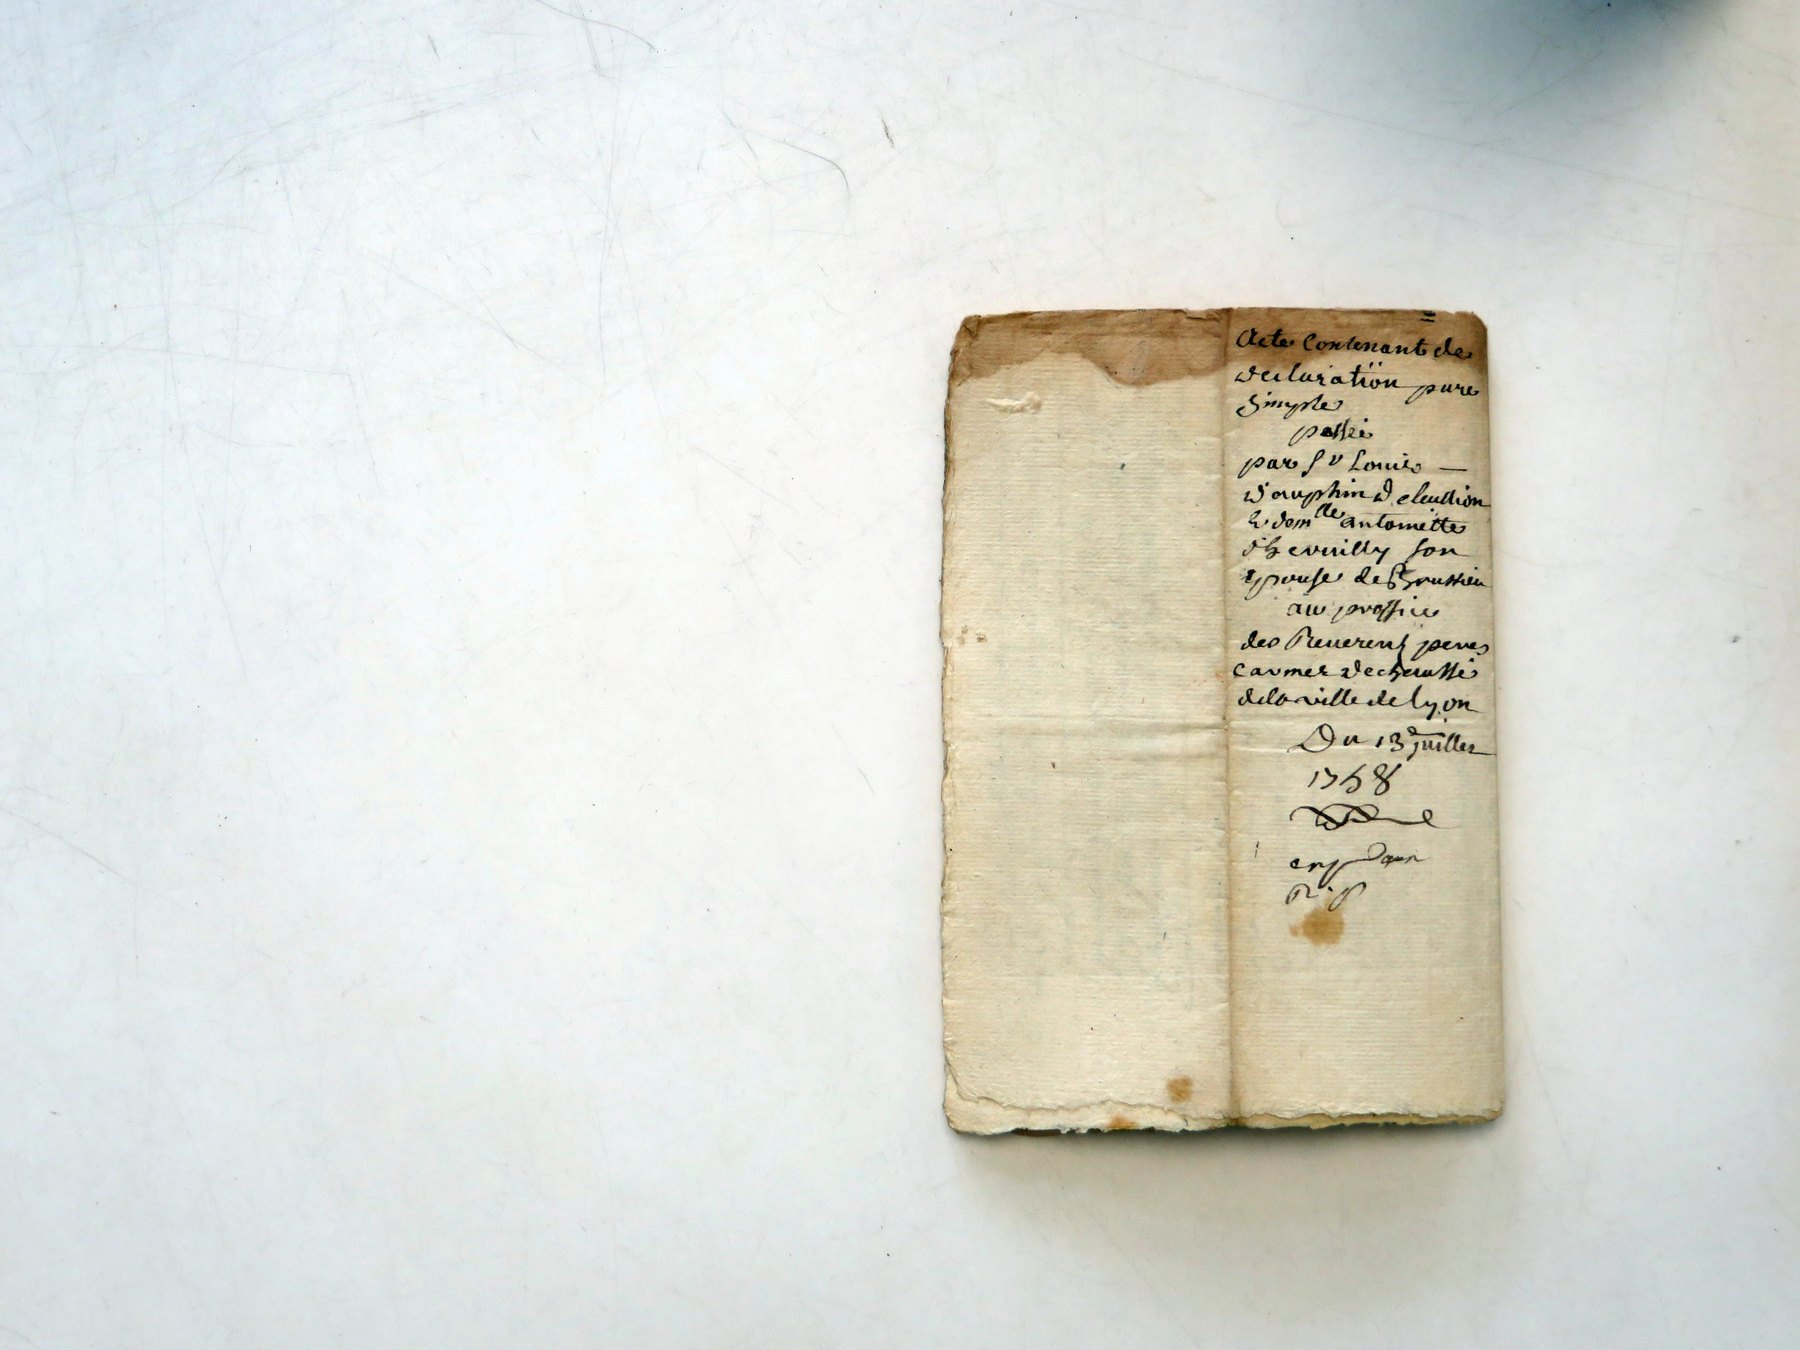 Acte Contenant de
declaration pure
Simple
passé
par Sr Louis —
dauphin d
& demlle antoinette
son
Epouse de Brussieu
au proffict
des Reverent peres
Carmes dechaussé
dela ville de lyon
Du 13e juillet
1758